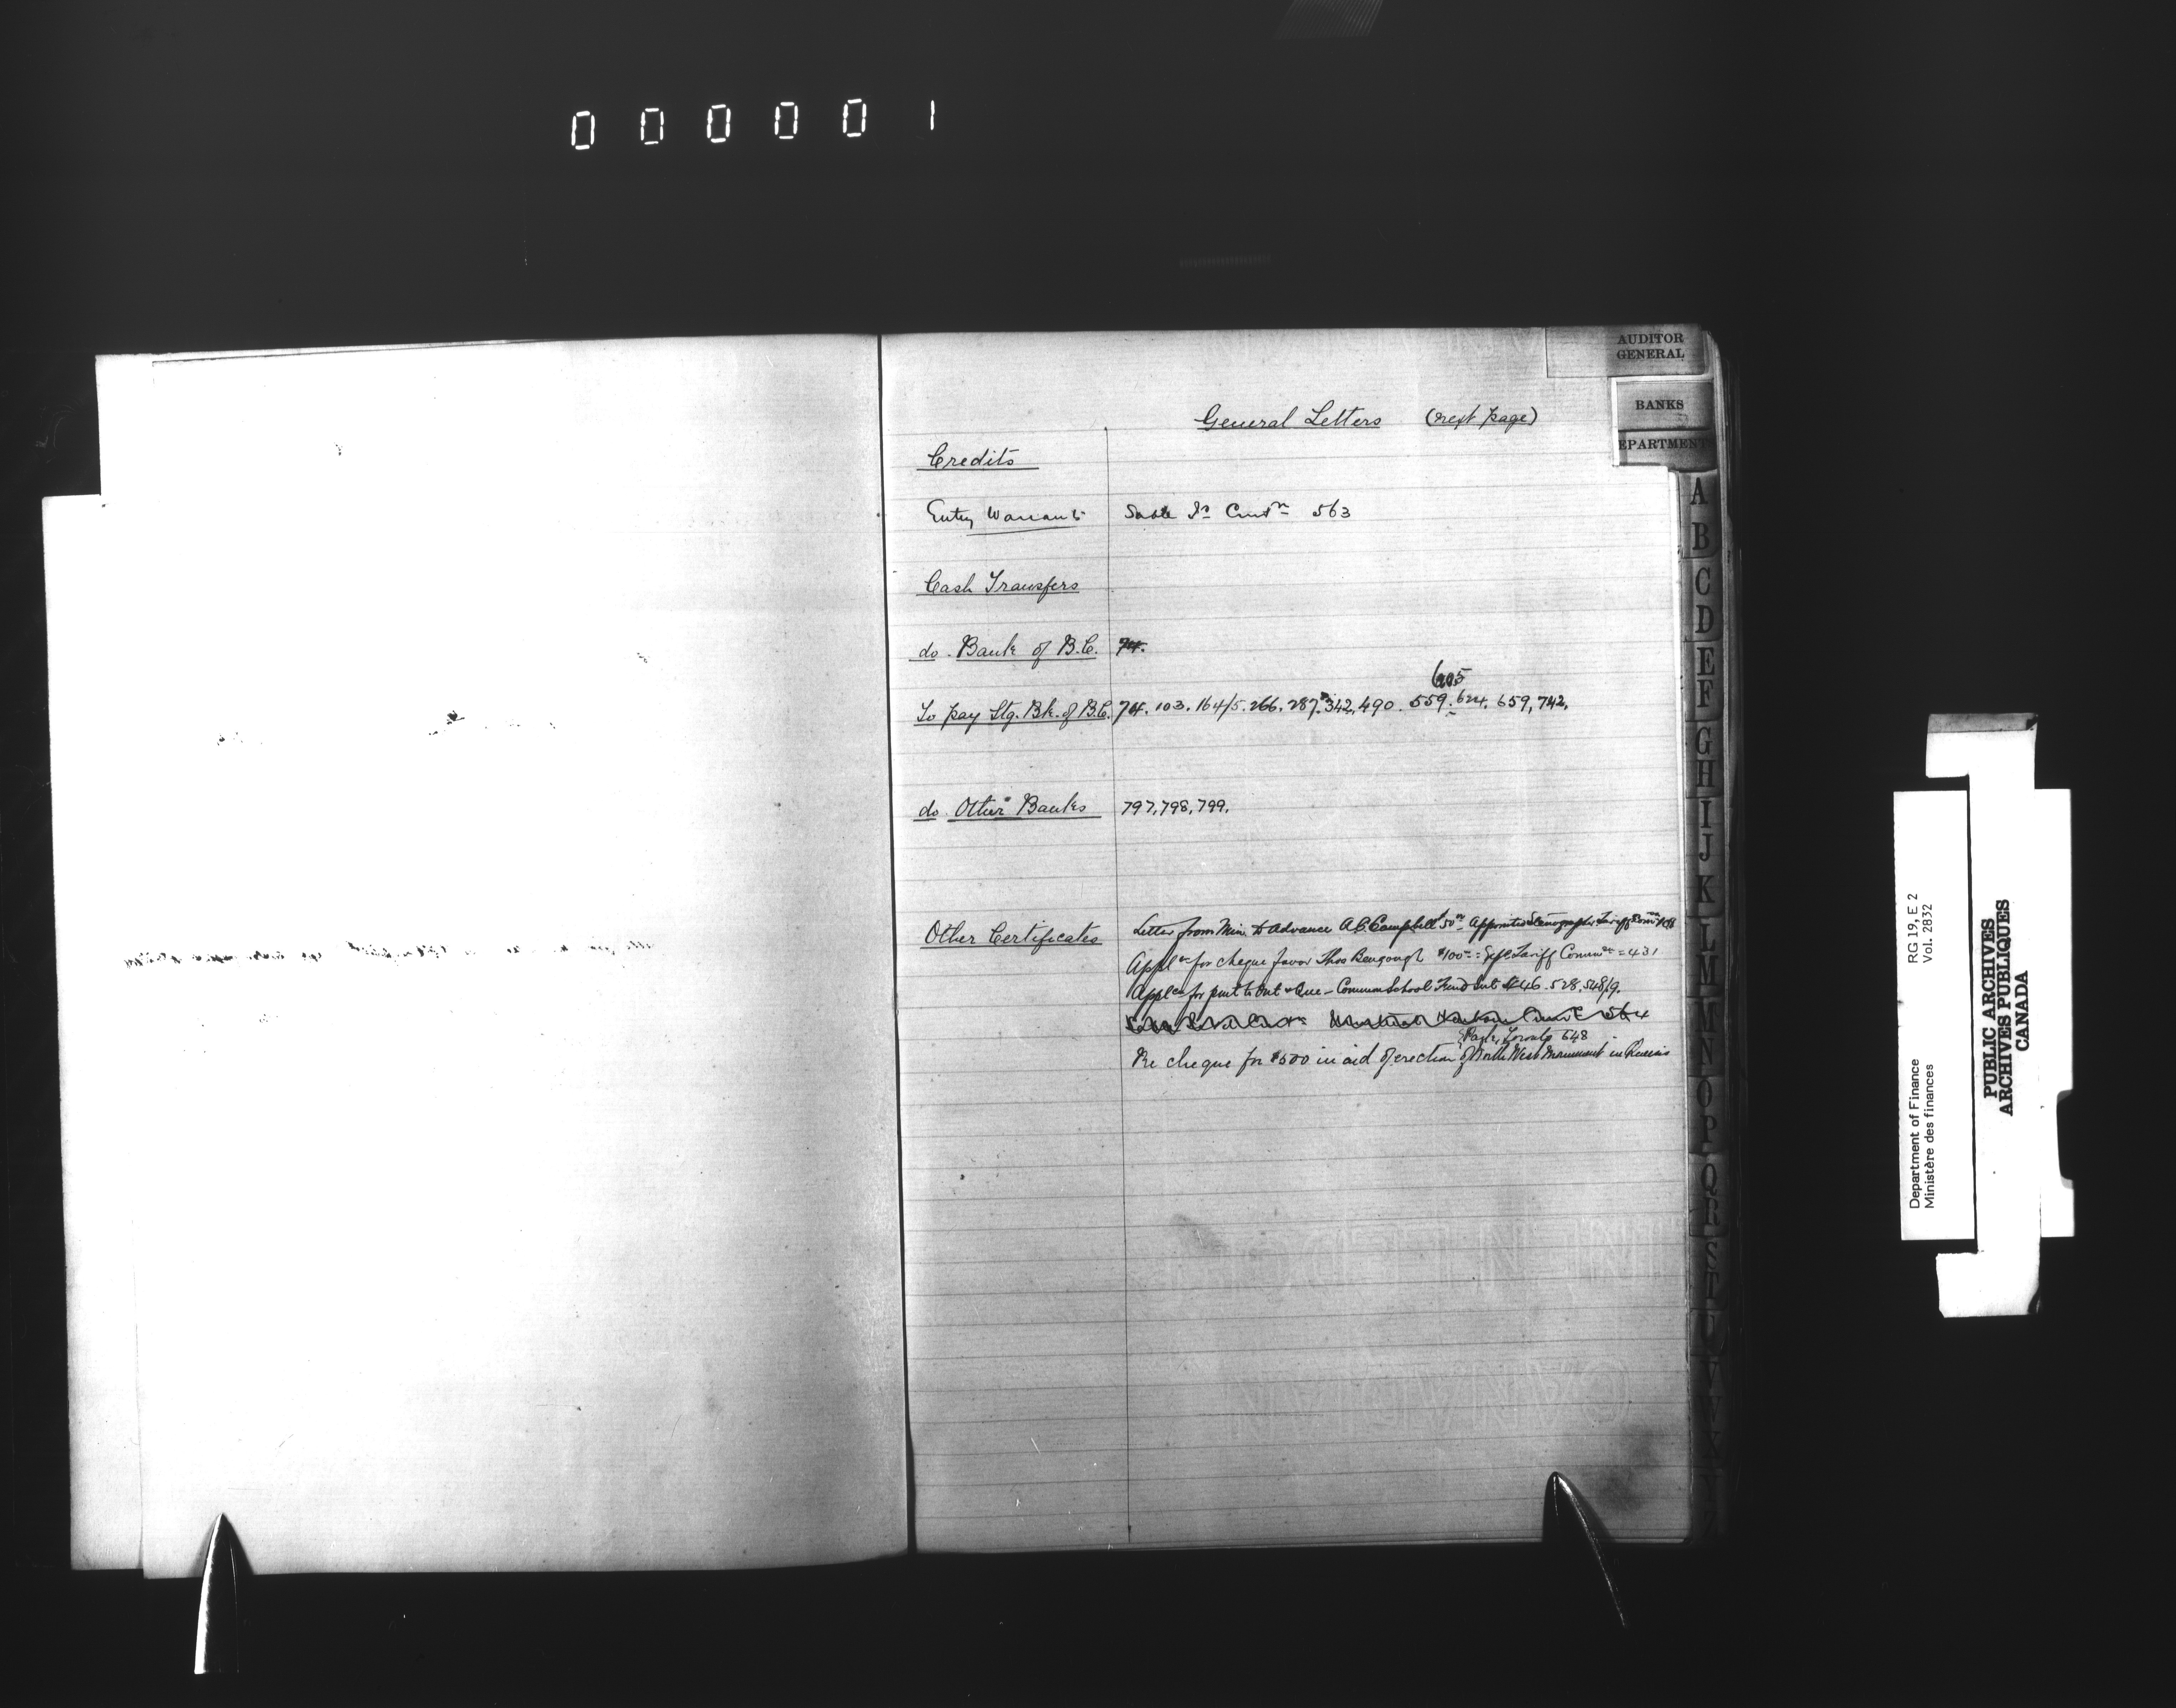 000001
AUDITOR
GENERAL
BANKS
EPARTMENT
General Letters (next page)
Credits
Entry Warrants Sable Is Constn 563
Cash Transfers
do. Bank of B.C. 74.
605
To pay Stg. Bk. of B.C. 74. 103. 164/5. 266. 287. 342. 490. 559. 624. 659, 742.
do. Other Banks 797, 798, 799.
Other Certificates Letter from Min. to advance A.C. Campbell $50 Appointed Stenographer Tariff
Applcn for cheque favor Thos Bengough $100 = Tariff Commn = 431
Applcn for pmt to Ont & Que - Common School Fund Int 446. 528. 548/9.
564
Park, Toronto 648
Re cheque for $500 in aid of erection of North West Monument in Queens
A
B
C
D
E
F
G
H
I
J
K
L
M
N
O
P
Q
R
S
T
U
V
RG 19, E 2
Vol. 2832
Department of Finance
Ministère des finances
PUBLIC ARCHIVES
ARCHIVES PUBLIQUES
CANADA